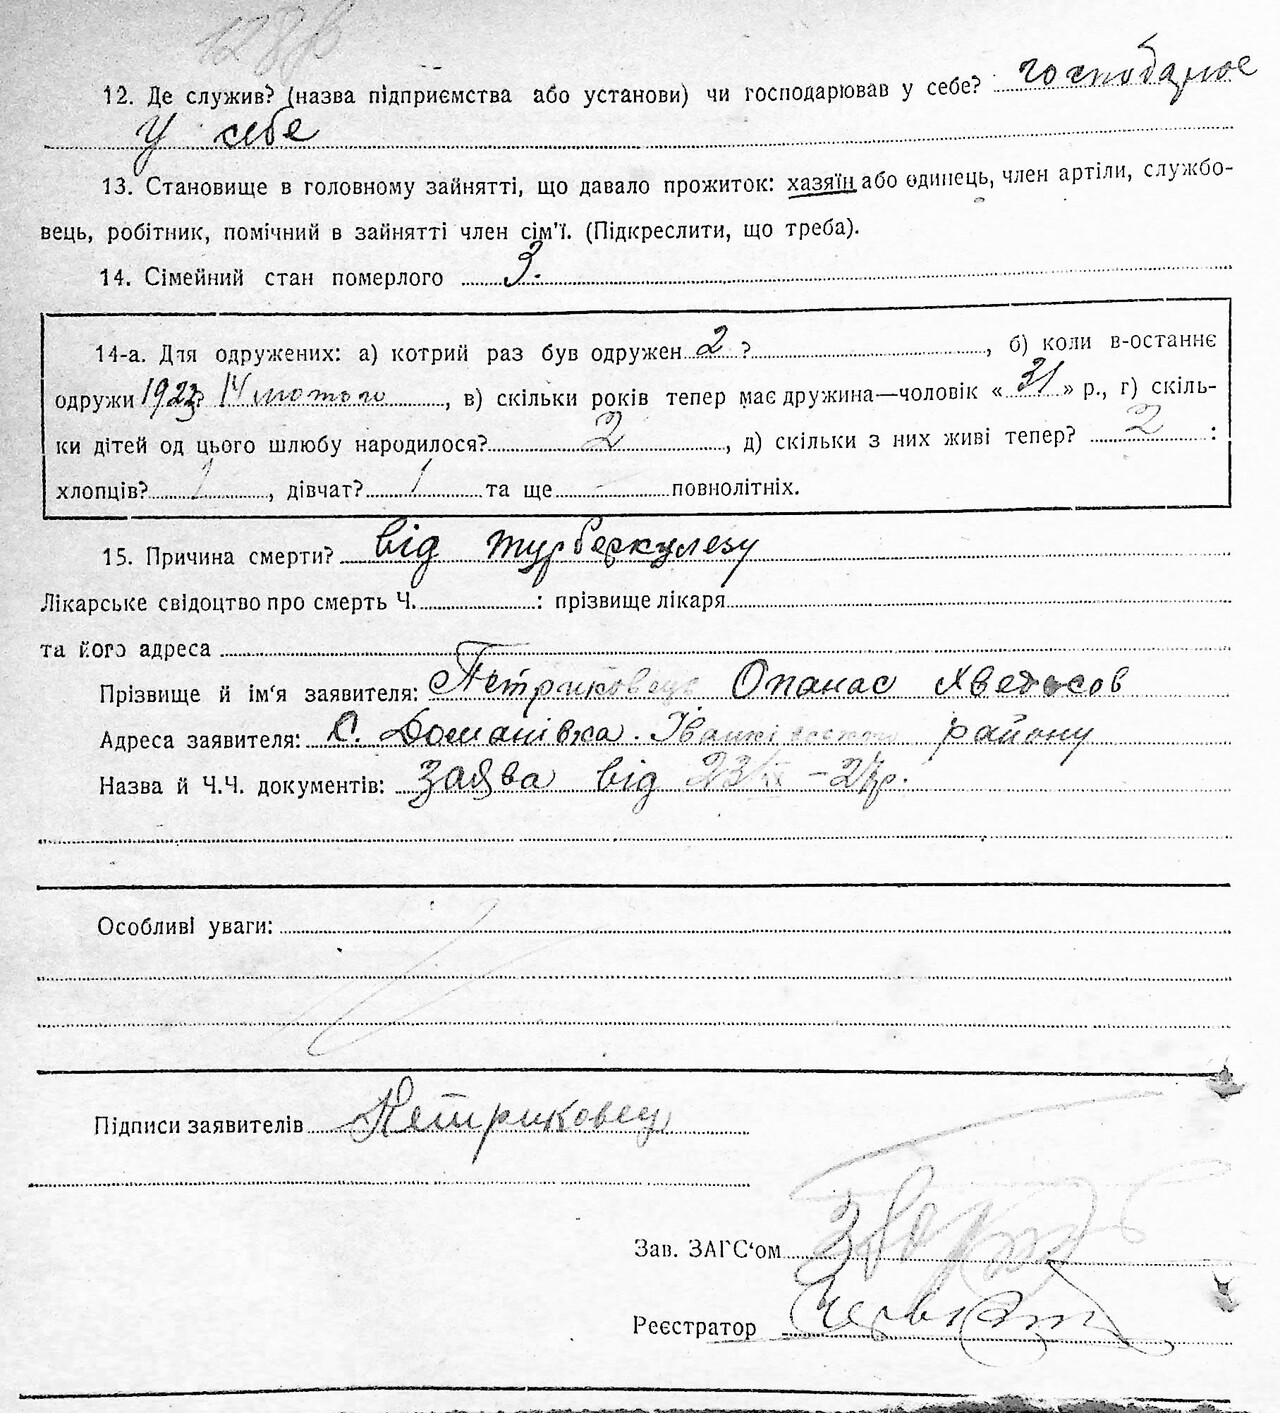 12. Де служив? (назва підприємства або установи) чи господарював у себе? господарює
У себе
13. Становище в головному зайнятті, що давало прожиток: хазяїн або одинець, член артіли, службо-
вець, робітник, помічний в зайнятті член сім'ї. (Підкреслити, що треба).
14. Сімейний стан померлого З.
14-а. Для одружених: а) котрий раз був одружен 2 ?, б) коли в-останнє
одружи 1923? 14 лютого, в) скільки років тепер має дружина—чоловік « 31 » р., г) скіль-
ки дітей од цього шлюбу народилося? 2, д) скільки з них живі тепер? 2 :
хлопців? 1, дівчат? 1 та ще - повнолітніх.
15. Причина смерти? від турберкулезу
Лікарське свідоцтво про смерть Ч. : прізвище лікаря
та його адреса
Прізвище й ім'я заявителя: Петриковець Опанас Хведосов
Адреса заявителя: С. Доманівка. району
Назва й Ч.Ч. документів: заява від 23/IX - 27р.
Особливі уваги:
Підписи заявителів Петриковец
Зав. ЗАГС'ом
Реєстратор